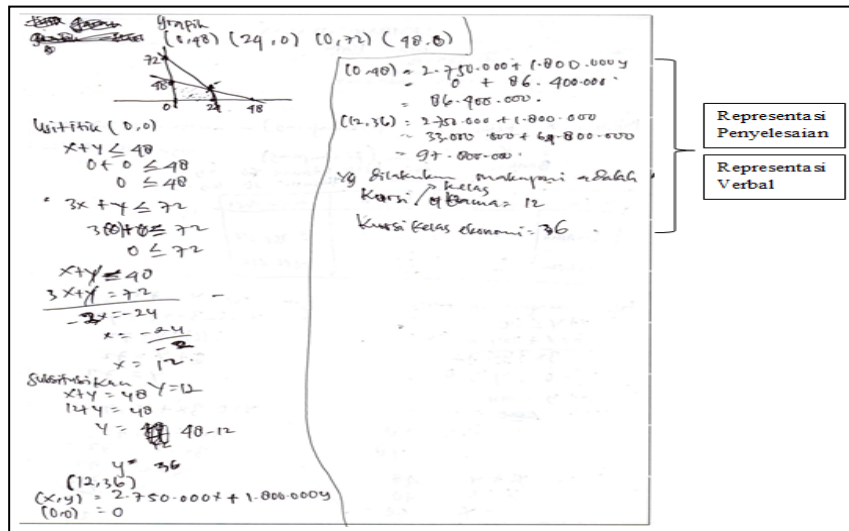 grapik
(0,48) (24,0) (0,72) (48.0)
72
48
0 24 48
Uji titik (0,0)
x+y ≤ 48
0+0 ≤ 48
0 ≤ 48
3x + y ≤ 72
3(0)+0 ≤ 72
0 ≤ 72
x+y = 48
3x+y = 72 -
-2x = -24
x = -24
-2
x = 12
Subsitusikan Y=12
x+y = 48
12+y = 48
y = 48-12
y = 36
(12,36)
(x,y) = 2.750.000x + 1.800.000y
(0,0) = 0
(0,48) = 2.750.000 + 1.800.000y
= 0 + 86.400.000.
= 86.400.000.
(12,36) = 2.750.000 + 1.800.000
= 33.000.000 + 64.800.000
= 97.800.000.
Yg dilakukan adalah
Kursi kelas utama = 12
Kursi kelas ekonomi = 36.
Representasi
Penyelesaian
Representasi
Verbal